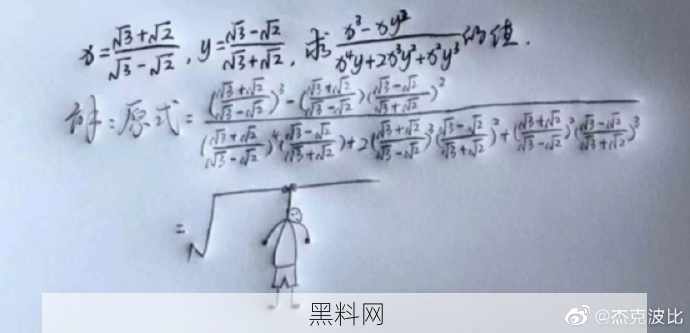 x=(√3+√2)/(√3-√2), y=(√3-√2)/(√3+√2), 求 (x³-xy²)/(x⁴y+2x³y²+x²y³) 的值.
解:原式= (((√3+√2)/(√3-√2))³-((√3+√2)/(√3-√2))((√3-√2)/(√3+√2))²)/(((√3+√2)/(√3-√2))⁴((√3-√2)/(√3+√2))+2((√3+√2)/(√3-√2))³((√3-√2)/(√3+√2))²+((√3+√2)/(√3-√2))²((√3-√2)/(√3+√2))³)
=√
黑料网
@杰克波比